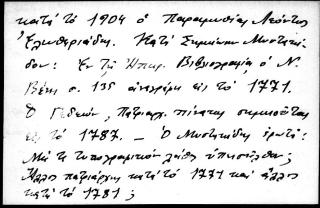 κατά τό 1904 ὁ Παραμυθίας Λεόντιος
Ἐλευθεριάδης. Κατά Σημείωσιν Μυστακί-
δου: Ἐν τῇ Ἠπειρ. Βιβλιογραφίᾳ ὁ Ν.
Βέης σ. 135 ἀναγράφει εἰς τό 1771.
Ὁ Γεδεών, Πατριαρχ. πίνακες σημειοῦται
εἰς τό 1787. — Ὁ Μυστακίδης ἐρωτᾷ:
Μή τι τυπογραφικόν λάθος ὑπεισῆλθεν;
Ἄλλος πατριάρχης κατά τό 1771 καί ἄλλος
κατά τό 1781;